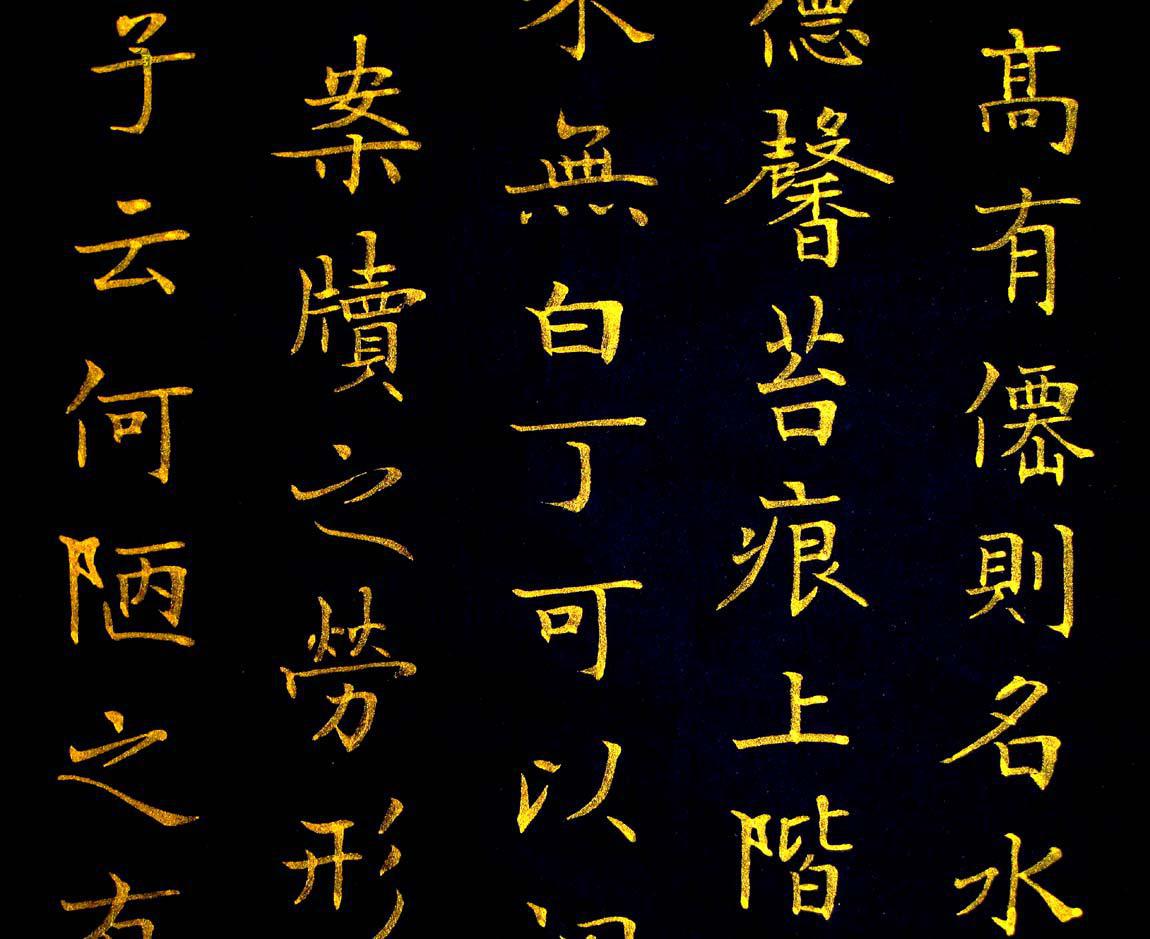 高有僊則名水
德馨苔痕上階
無白丁可以
案牘之勞形
子云何陋之有